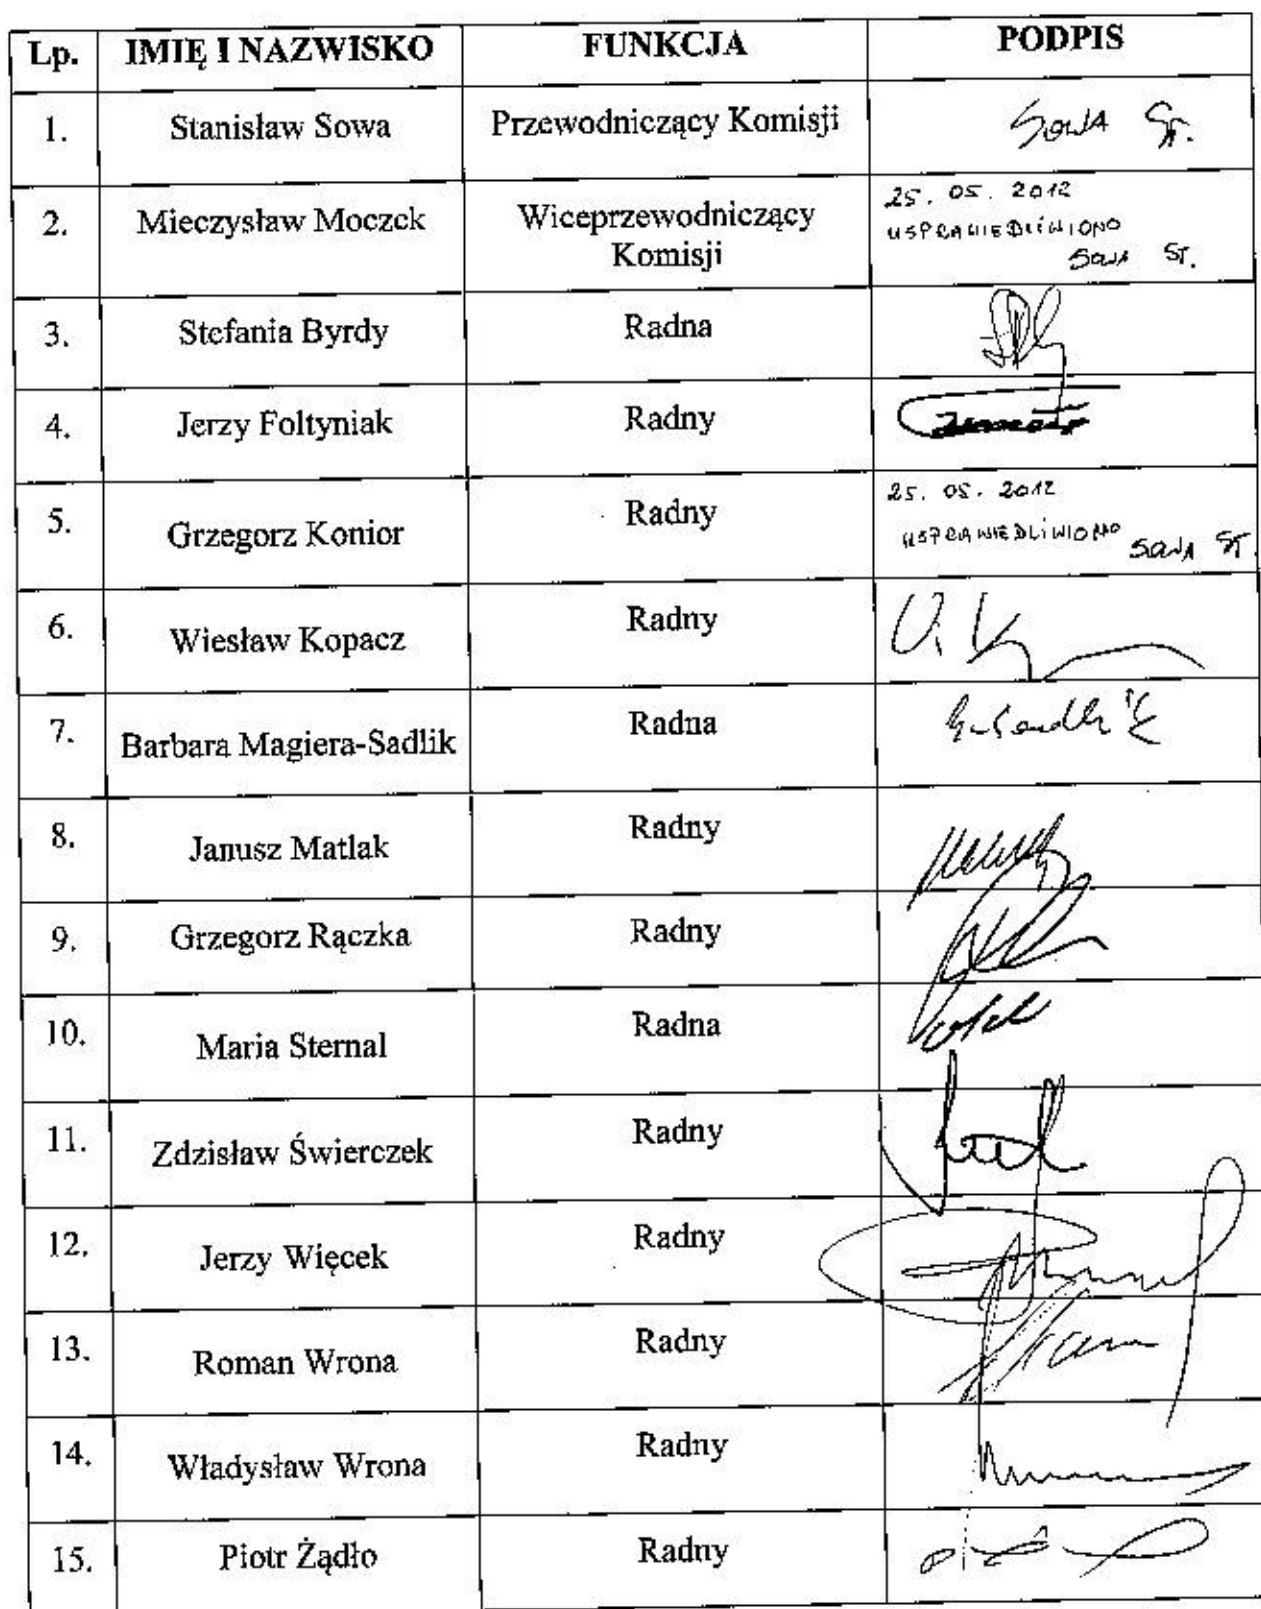 Lp. IMIĘ I NAZWISKO FUNKCJA PODPIS
1. Stanisław Sowa Przewodniczący Komisji Sowa St.
2. Mieczysław Moczek Wiceprzewodniczący Komisji 25. 05. 2012
USPRAWIEDLIWIONO
Sowa St.
3. Stefania Byrdy Radna
4. Jerzy Foltyniak Radny
5. Grzegorz Konior Radny 25. 05. 2012
USPRAWIEDLIWIONO Sowa St.
6. Wiesław Kopacz Radny
7. Barbara Magiera-Sadlik Radna
8. Janusz Matlak Radny
9. Grzegorz Rączka Radny
10. Maria Sternal Radna
11. Zdzisław Świerczek Radny
12. Jerzy Więcek Radny
13. Roman Wrona Radny
14. Władysław Wrona Radny
15. Piotr Żądło Radny